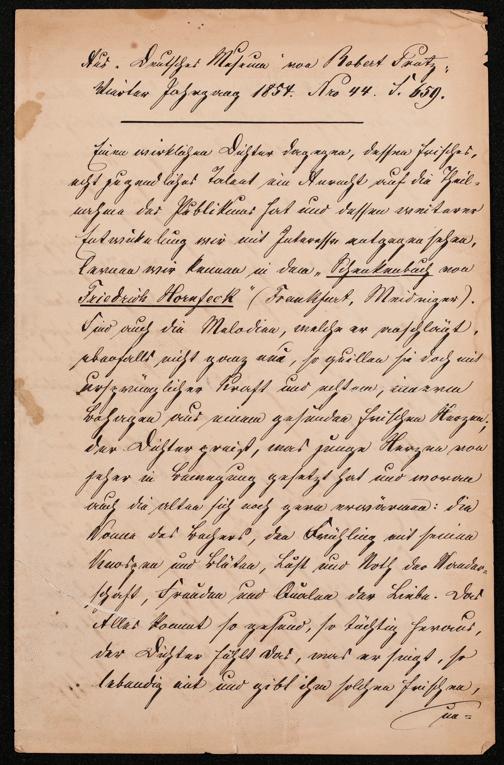 Aus „Deutsches Museum" von Robert Prutz,
Vierter Jahrgang 1854. Nro 44. S. 659.
Einen wirklichen Dichter dagegen, dessen frisches,
echt jugendliches Talent ein Anrecht auf die Theil-
nahme des Publikums hat und dessen weiterer
Entwickelung wir mit Interesse entgegen sehen,
lernen wir kennen in dem „Schenkenbuch von
Friedrich Hornfeck" (Frankfurt, Meidinger).
Sind auch die Melodien, welche er anschlägt,
ebenfalls nicht ganz neu, so quillen sie doch mit
ursprünglicher Kraft und echtem, innerm
Behagen aus einem gesunden frischen Herzen.
der Dichter preist, was junge Herzen von
jeher in Bewegung gesetzt hat und woran
auch die alten sich noch gern erwärmen: die
Wonne des Bechers, den Frühling mit seinen
Knospen und Blüten, Lust und Noth der Wander-
schaft, Freuden und Qualen der Liebe. Das
Alles kommt so gesund, so tüchtig heraus,
der Dichter fühlt das, was er singt, so
lebendig mit und gibt ihm solchen frischen,
un=